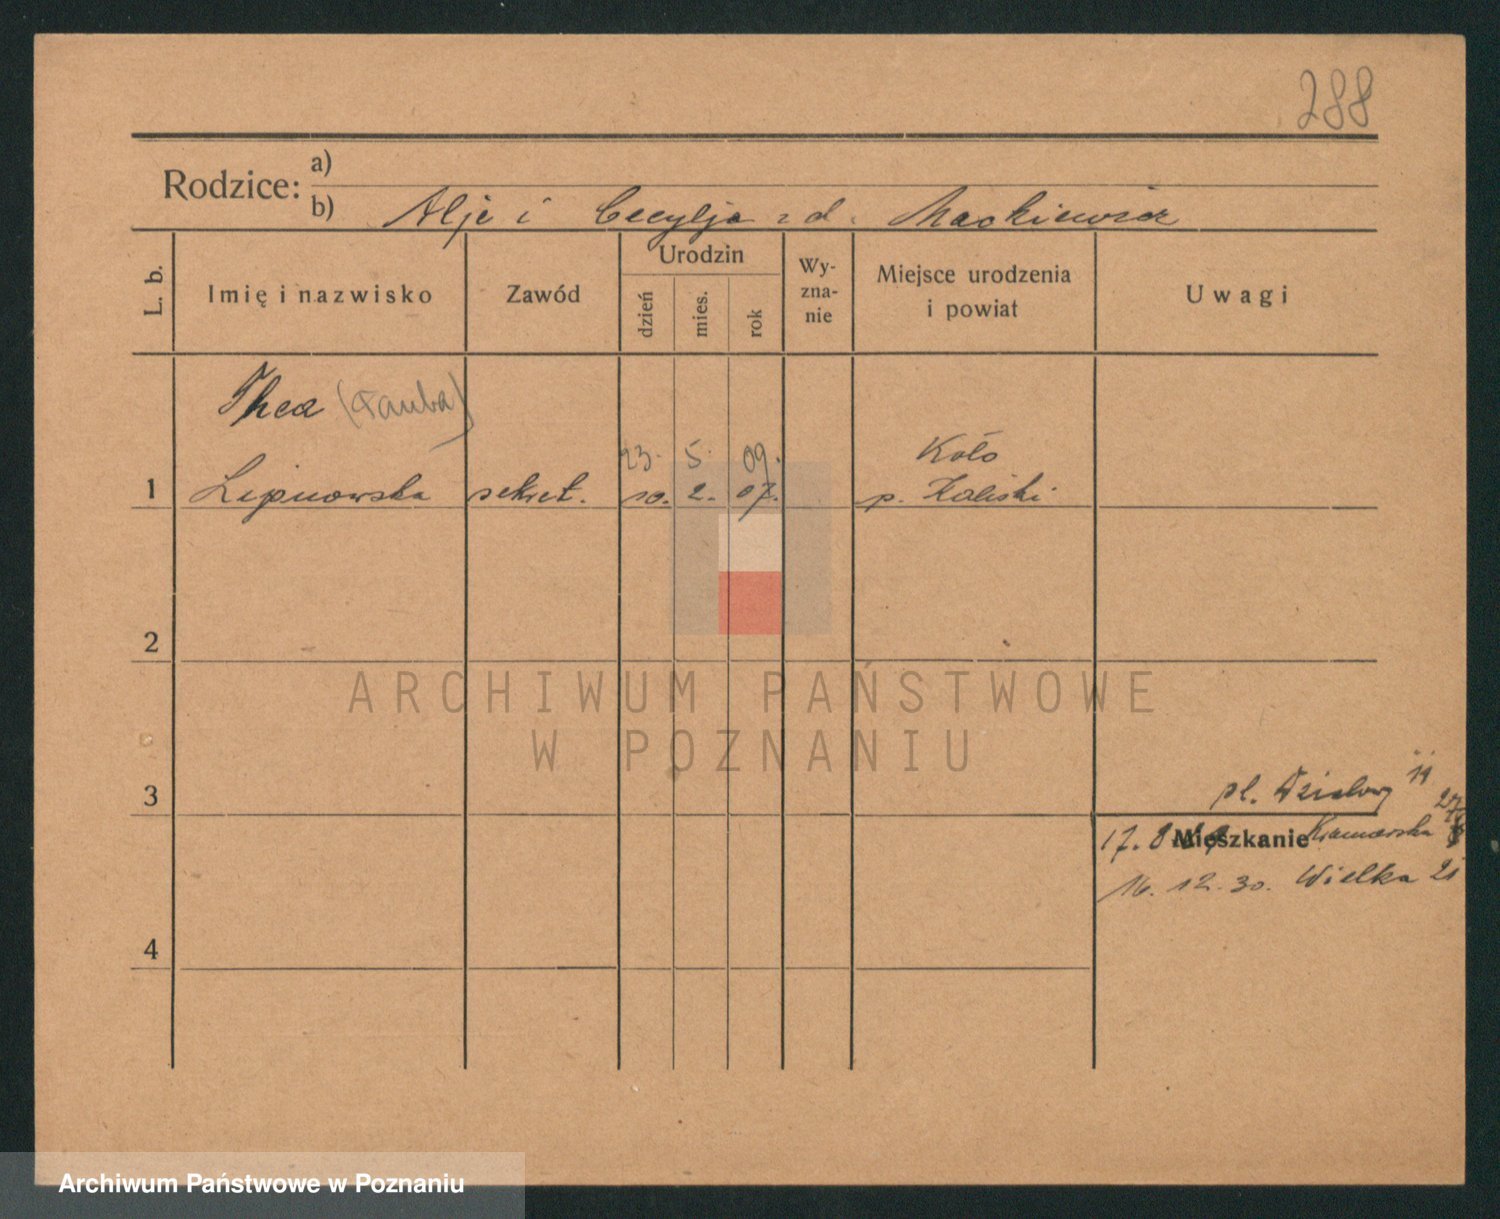 288
Rodzice: a)
b) Alje i Cecylja z d. Mackiewicz
L. b. Imię i nazwisko Zawód Urodzin dzień mies. rok Wy-zna-nie Miejsce urodzenia i powiat Uwagi
Thea (Tauba)
23. 5. 09. Koło
1 Lipnowska sekret. 10. 2. 07. p. Kaliski
2
ARCHIWUM PAŃSTWOWE
W POZNANIU
pl. Działowy 11
3
Mieszkanie
17. 8. Kramarska
16. 12. 30. Wielka 21
4
Archiwum Państwowe w Poznaniu